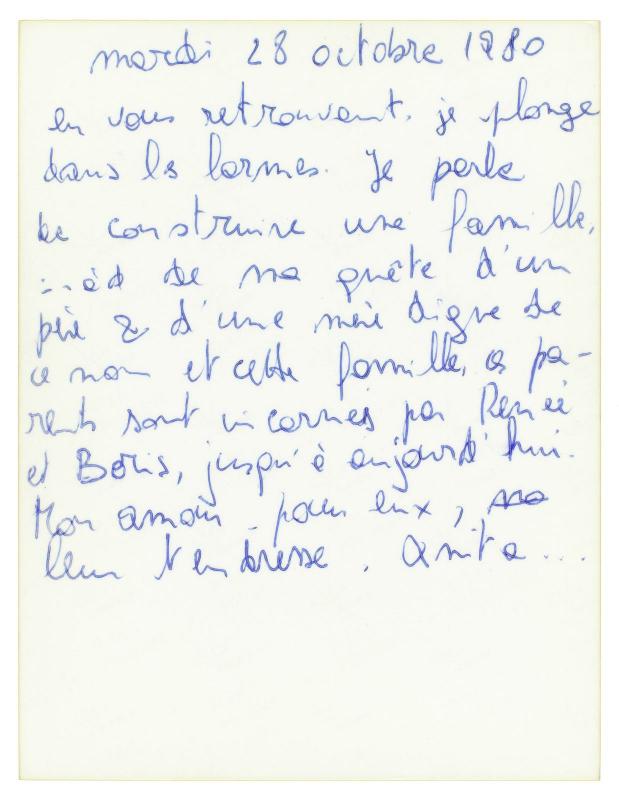 mardi 28 octobre 1980
en vous retrouvant, je plonge
dans les larmes. Je parle
de construire une famille,
de ma quête d'un
père & d'une mère digne de
ce nom et cette famille, ces pa-
rents sont incarnés par Renée
et Boris, jusqu'à aujourd'hui.
Mon amour pour eux,
leur tendresse. Anita...